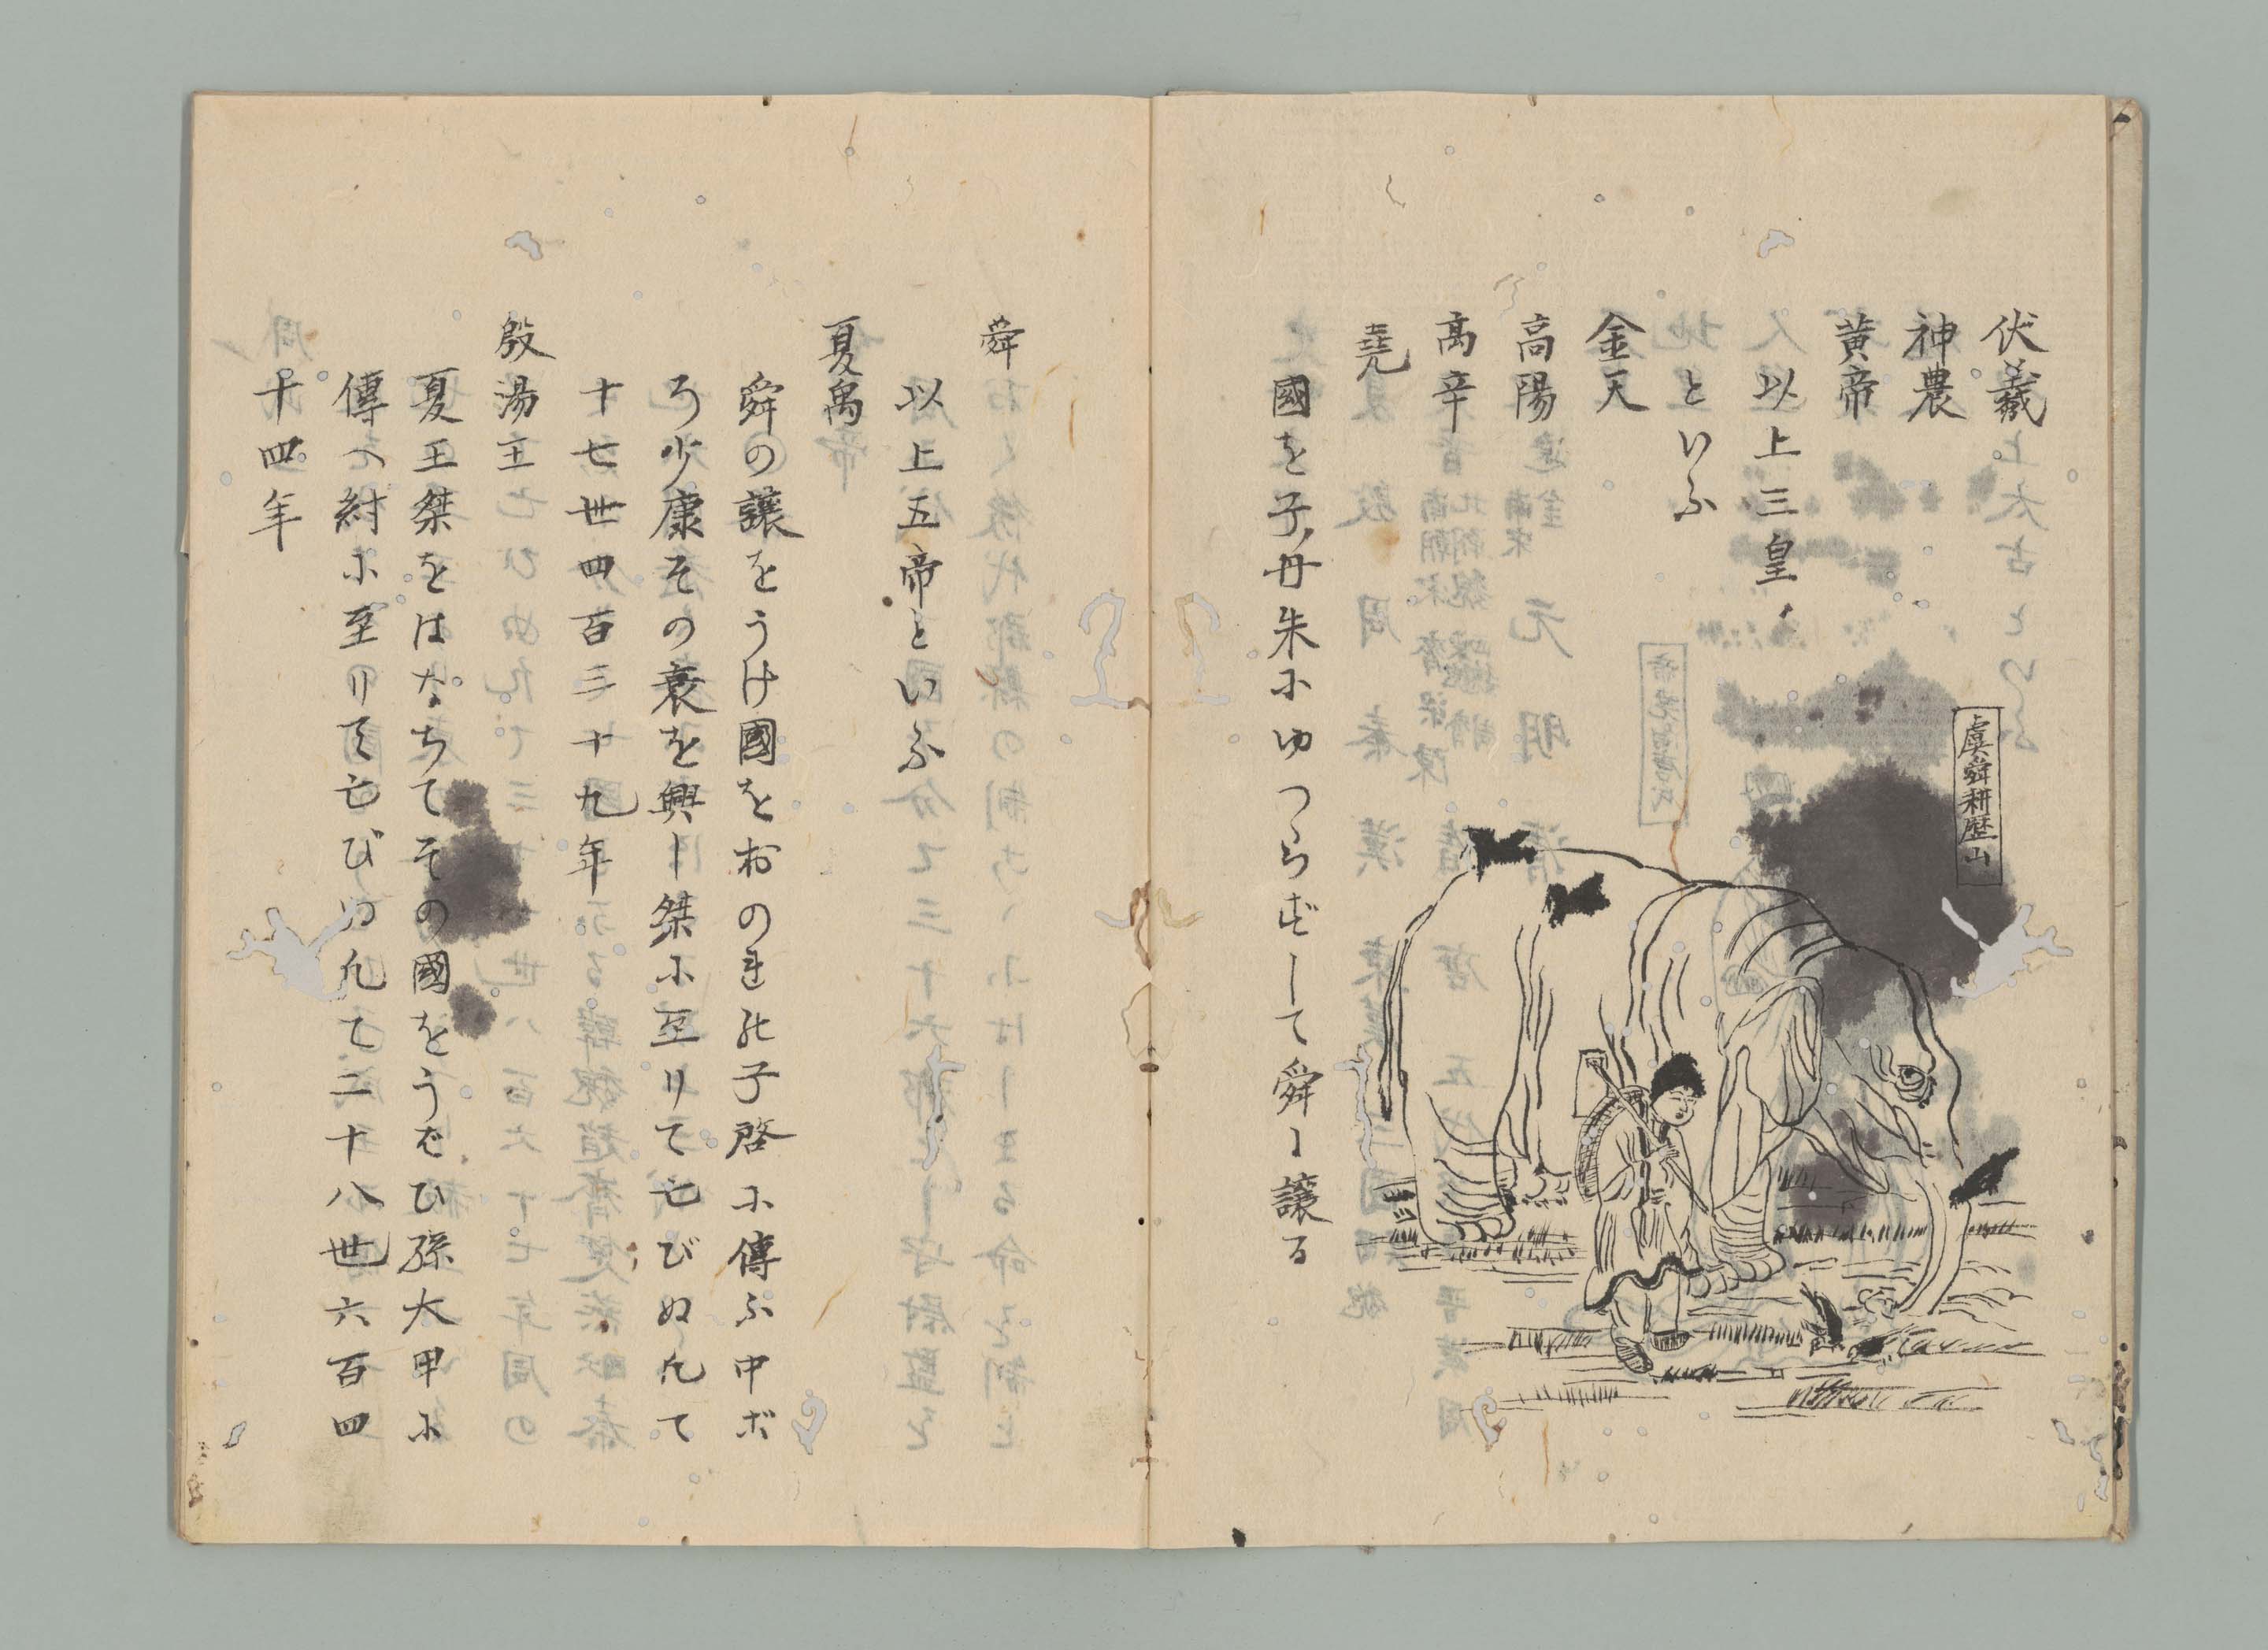 伏羲
神農
黄帝
以上三皇ノ
地といふ
金天
高陽
高辛
堯
國を子丹朱にゆつらずして舜に譲る
虞舜耕歴山
舜
以上五帝といふ
夏禹
舜の譲をうけ國をおのれ北子啓に傳ふ中ボ
ろ少康その衰を興し桀に至りて亡びぬ凡て
十七世四百三十九年
殷湯王
夏王桀をはなちてその國をうばひ孫大甲に
傳へ紂に至りて亡びぬ凡て二十八世六百四
十四年